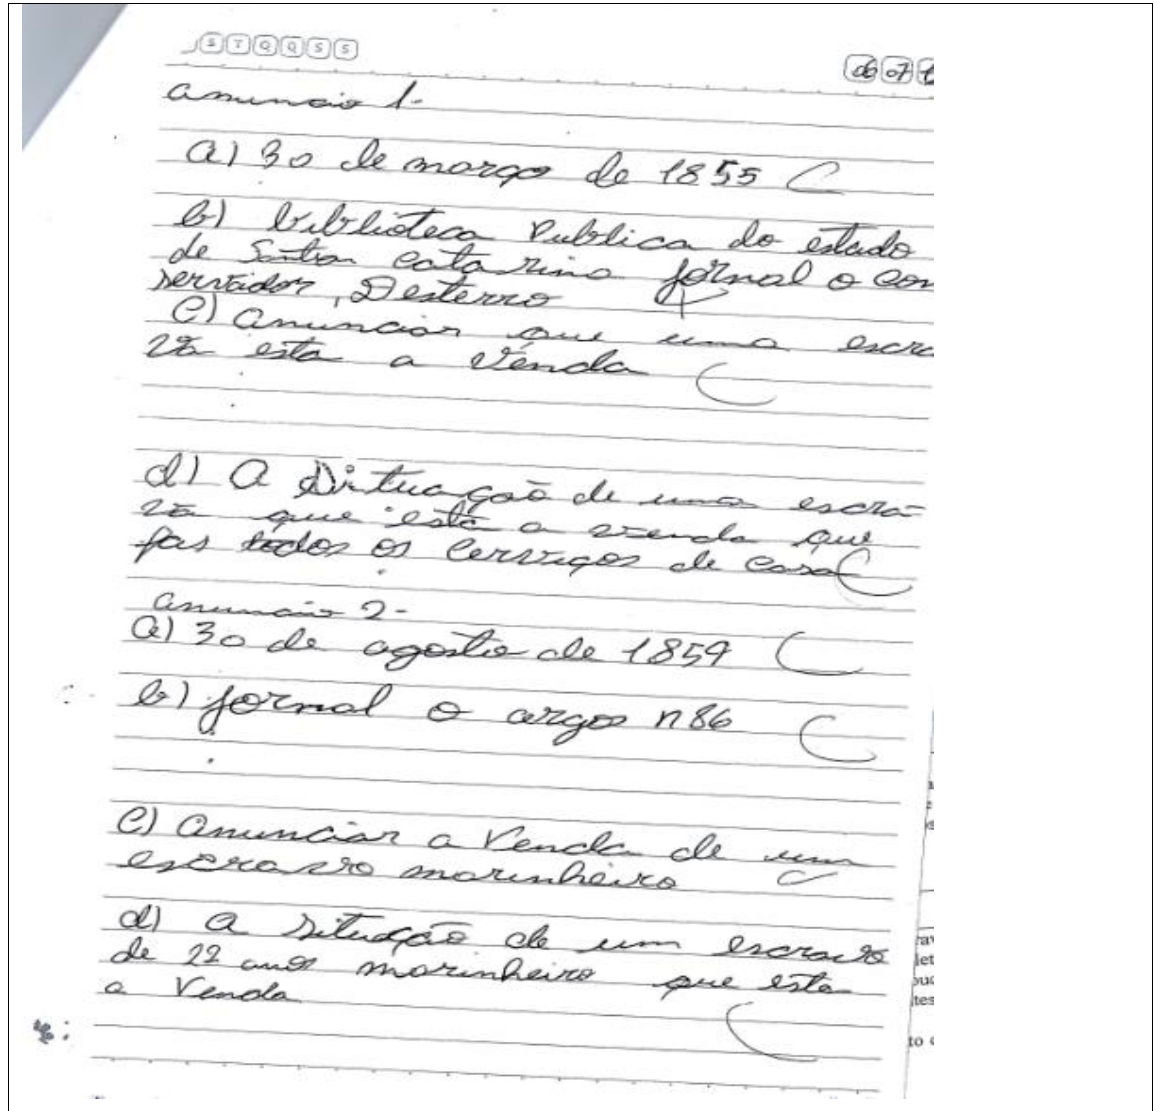 S T Q Q S S
06 07 1
anuncio 1-
a) 30 de março de 1855 C
b) biblioteca Publica do estado
de Santa catarina jornal o con
servador, Desterro
c) anunciar que uma escra
va esta a venda C
d) A situação de uma escra-
va que esta a venda que
fas todos os cerviços de casa C
anuncio 2-
a) 30 de agosto de 1859 C
b) jornal o argos n86 C
c) anunciar a Venda de um
escravo marinheiro C
d) a situação de um escravo
de 22 anos marinheiro que esta
a Venda C